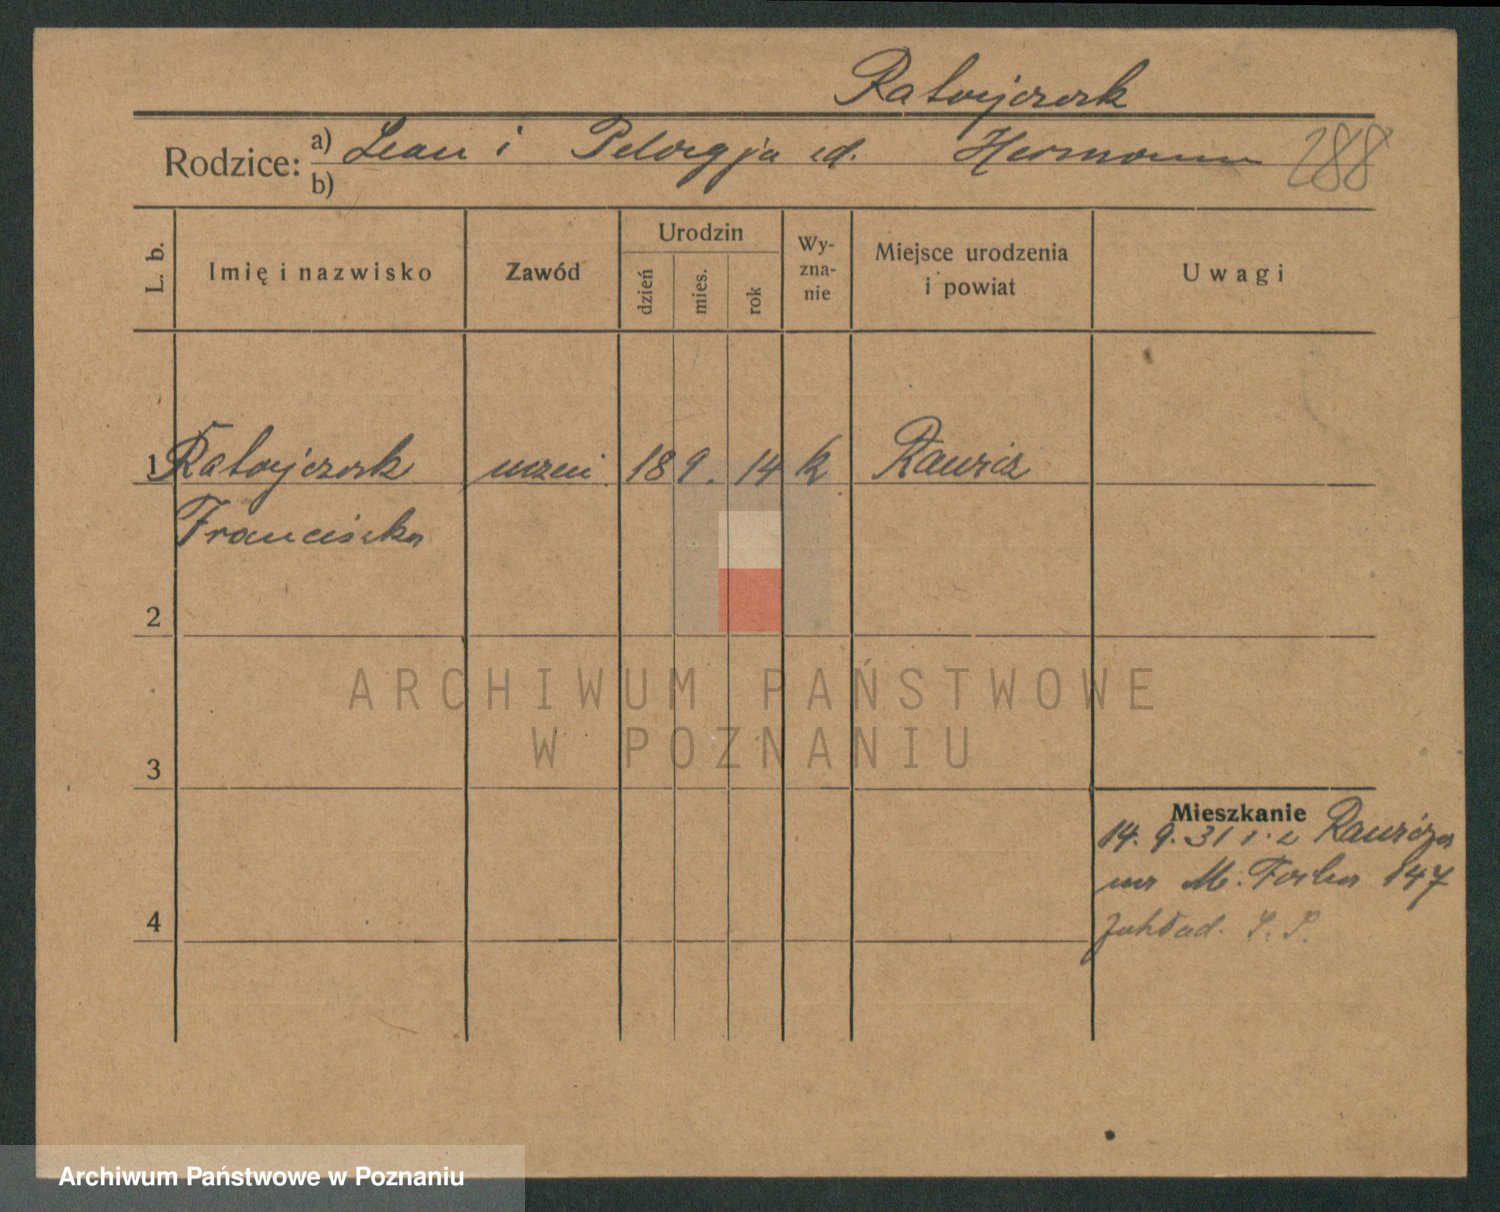 Ratajczak
Rodzice: a) Leon i Pelagja ur. Hermann 288
b)
L. b. Imię i nazwisko Zawód Urodzin dzień mies. rok Wy-zna-nie Miejsce urodzenia i powiat Uwagi
1 Ratajczak uczeń 18 9. 14 k Rawicz
Franciszka
2
ARCHIWUM PAŃSTWOWE
W POZNANIU
3
Mieszkanie
14. 9. 31 z Rawicza
M. Focha 147
4
Zakład. S. P.
Archiwum Państwowe w Poznaniu